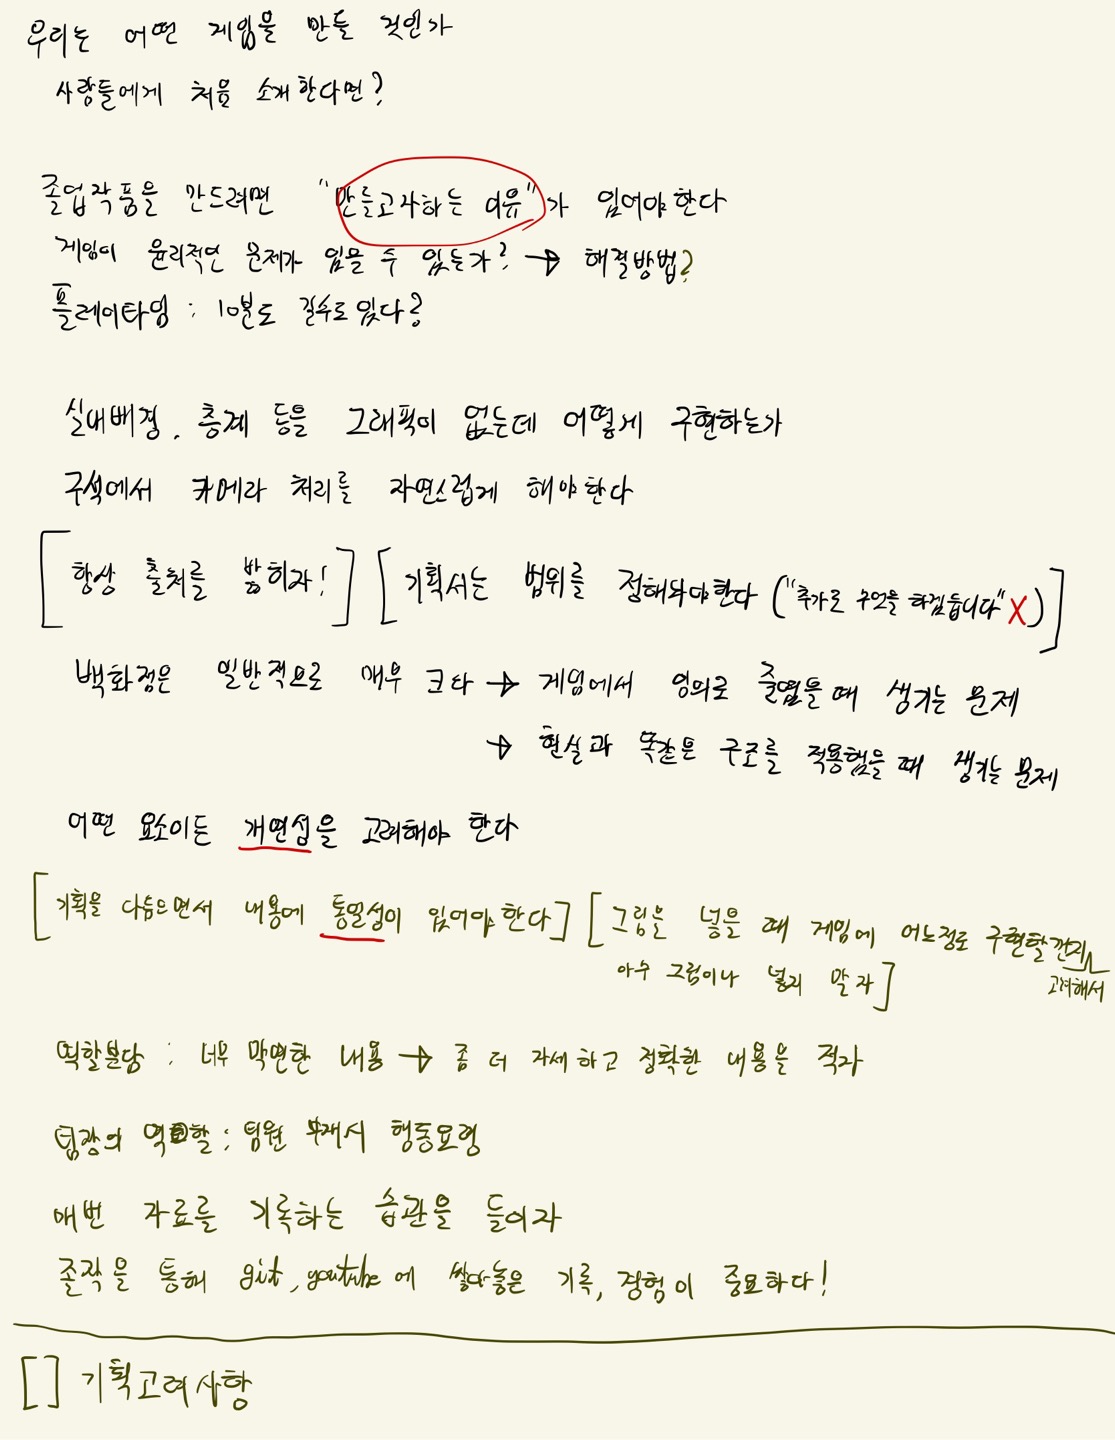 우리는 어떤 게임을 만들 것인가
사람들에게 처음 소개한다면?
졸업작품을 만드려면 "만들고자하는 이유"가 있어야한다
게임이 윤리적인 문제가 있을 수 있는가? → 해결방법?
플레이타임 : 10분도 길수도있다?
실내배경, 층계 등을 그래픽이 없는데 어떻게 구현하는가
구석에서 카메라 처리를 자연스럽게 해야한다
[항상 출처를 밝히자!] [기획서는 범위를 정해놔야한다 ("추가로 무엇을 하겠습니다" X)]
백화점은 일반적으로 매우 크다 → 게임에서 임의로 줄였을 때 생기는 문제
→ 현실과 똑같은 구조를 적용했을 때 생기는 문제
어떤 요소이든 개연성을 고려해야 한다
[기획을 다듬으면서 내용에 통일성이 있어야 한다] [그림을 넣을 때 게임에 어느정도 구현할건지
고려해서
아무 그림이나 넣지 말자]
역할분담 : 너무 막연한 내용 → 좀 더 자세하고 정확한 내용을 적자
팀장의 역할 : 팀원 부재시 행동요령
매번 자료를 기록하는 습관을 들이자
졸작을 통해 git, youtube에 쌓아놓은 기록, 경험이 중요하다!
[] 기획고려사항